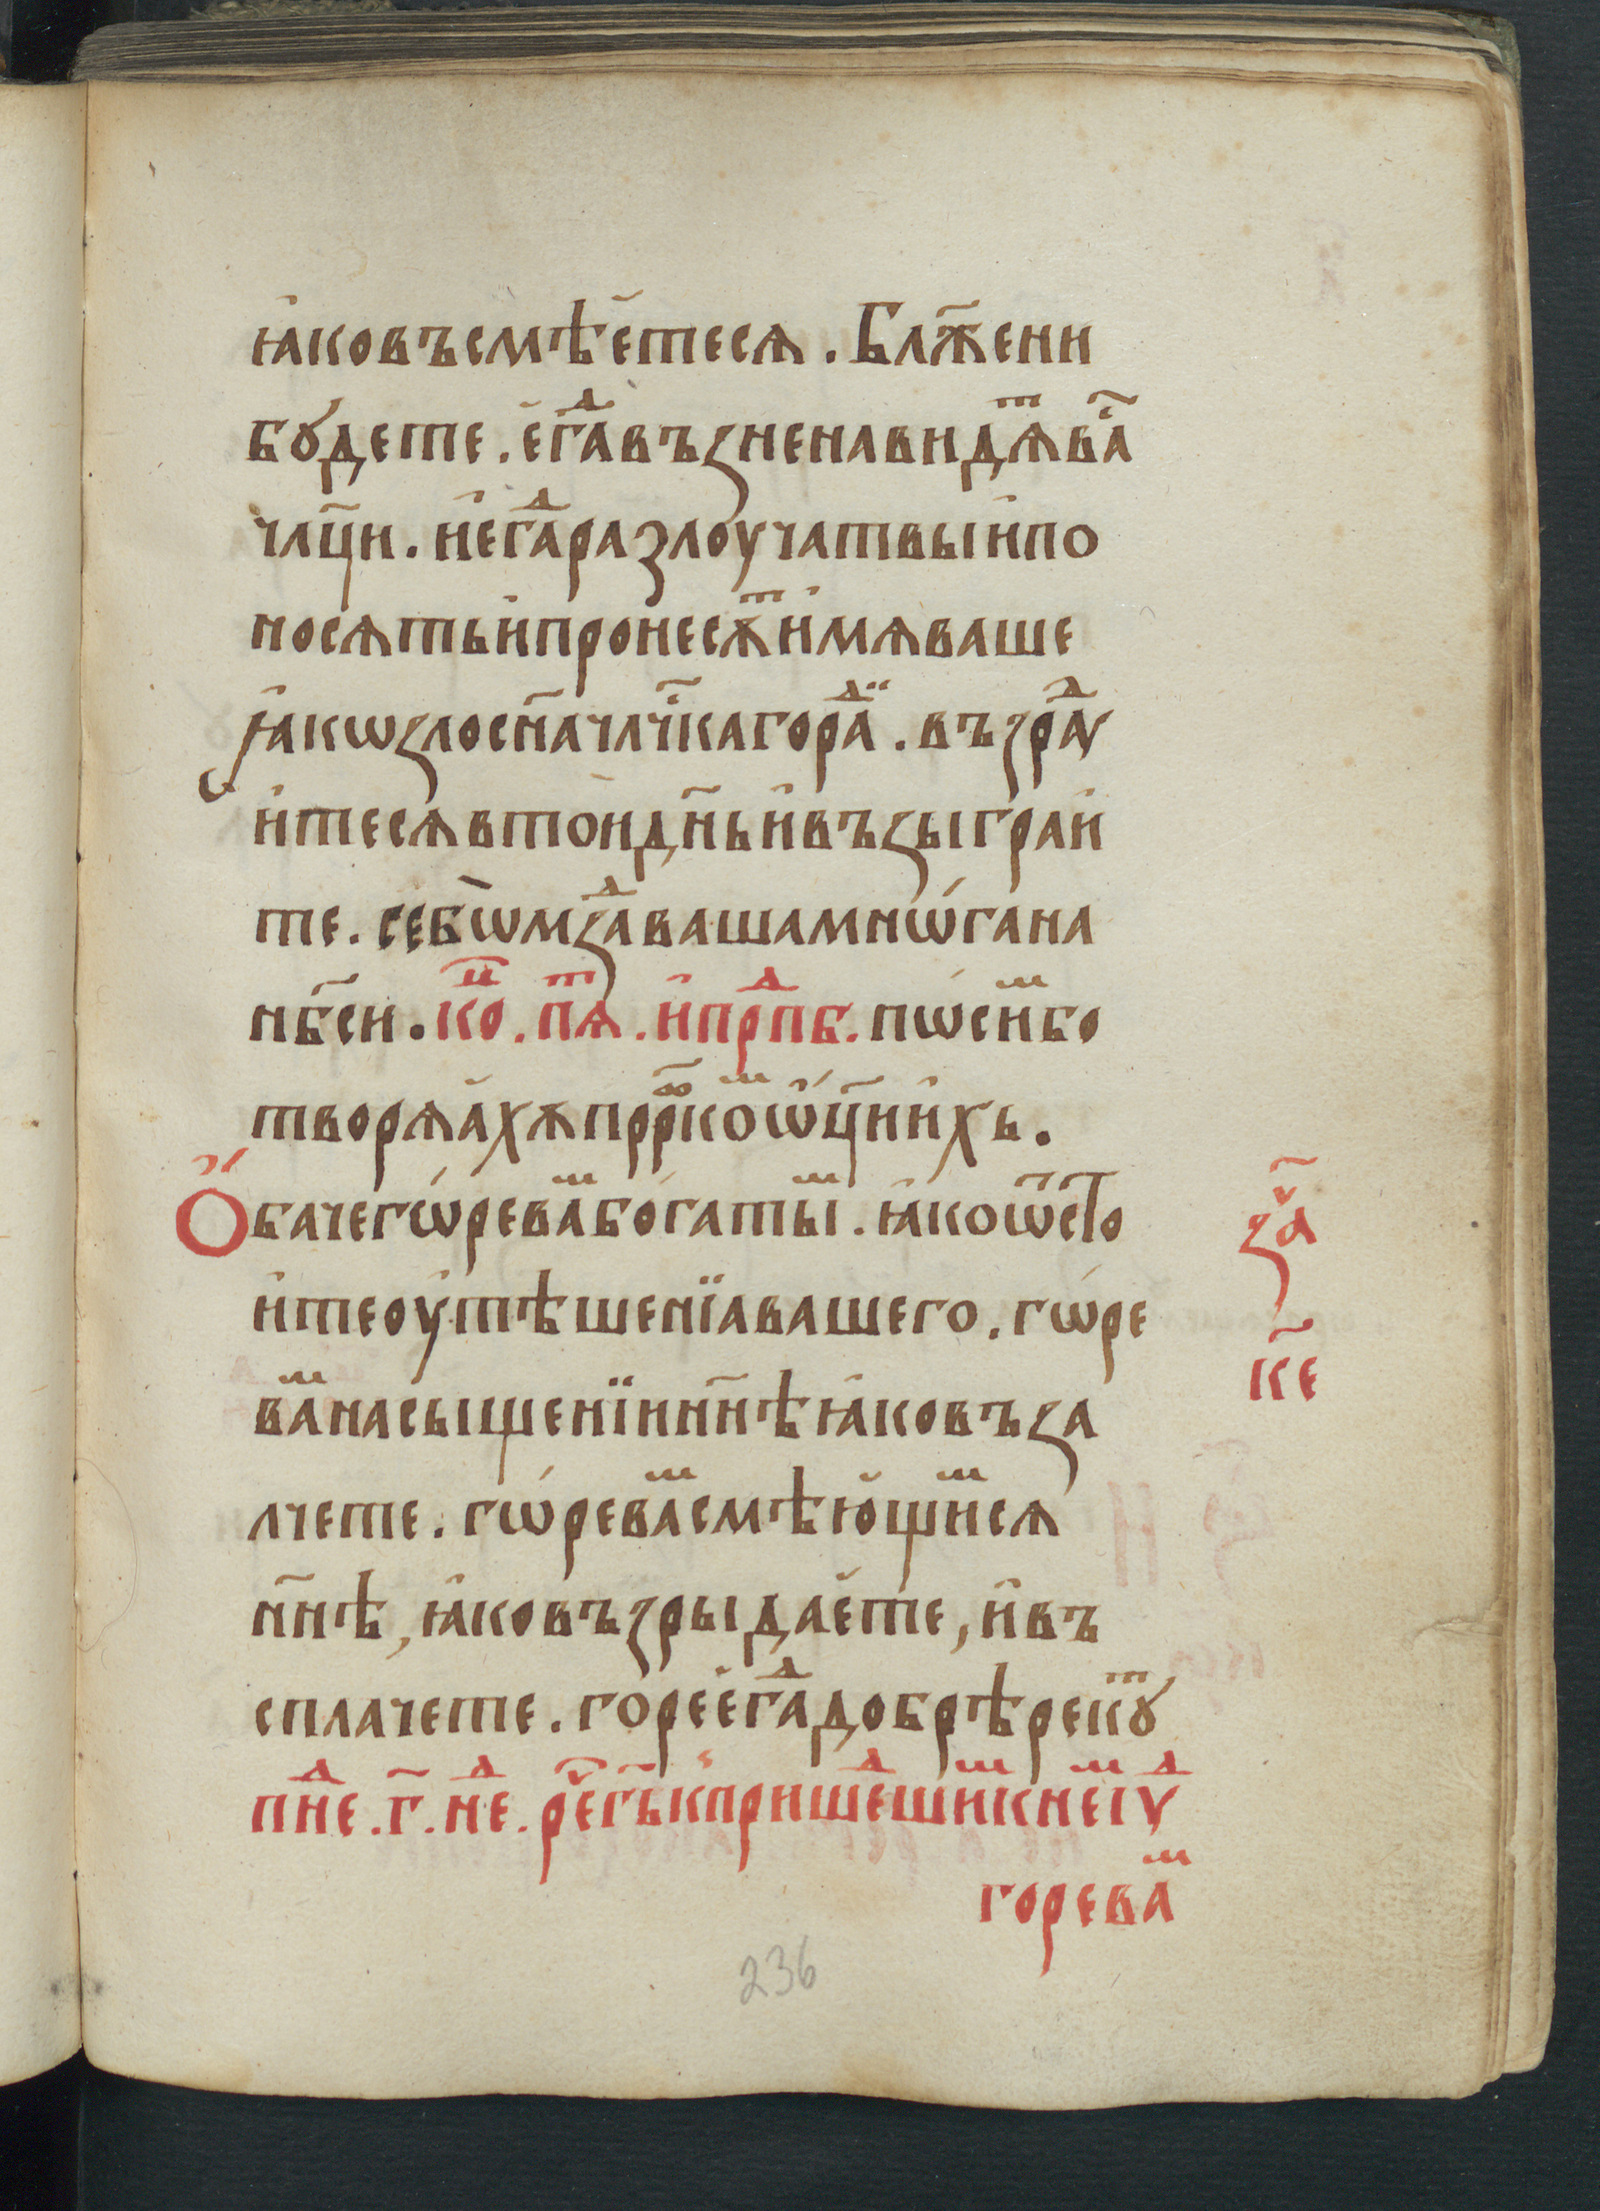 ꙗ҆ковъсмѣе҆тесѧ. Блаⷤ҇ени
бꙋдете. е҆гⷣавъꙁненавидѧⷮва҇
чл҃ци. и҆егⷣаразлоучатвыи҆по
носѧтьи҆пронесѫⷮи҆мѧваше
ꙗ҆кѡꙁлосн҃ачл҃чⷭкагораⷣи. въꙁраⷣу
и҆тесѧвтоидн҃ьи҆въꙁыграи
те. себѡмꙁⷣавашамнѡ́гана
нб҃си. коⷰ҇. пѧⷮ. и҆прⷣпб. пѡсиⷨбо
творѧа҆хѫпррⷪ҇коⷨѿц҃ии҆хь.
Ѻ҆́бачегѡ́реваⷨбога́тыⷨ. ꙗ҆коѿсто
и҆теоу҆тѣшенїавашего. гѡ́ре
ваⷨнасыщенїинн҃ѣꙗ҆ковъꙁа
лчете. гѡ́реваⷨсмѣю҆щиⷨсѧ
нн҃ѣ, ꙗ҆ковъꙁрыдае҆те, и҆въ
сплачете. горее҆гⷣадобрѣрекꙋⷮ
пнⷣе. г҃. нⷣе. рⷱ҇егь҃кпришеⷣшиⷨкнеⷨіуⷣ
гореваⷨ
ꙁаⷱ҇
к҃е
236